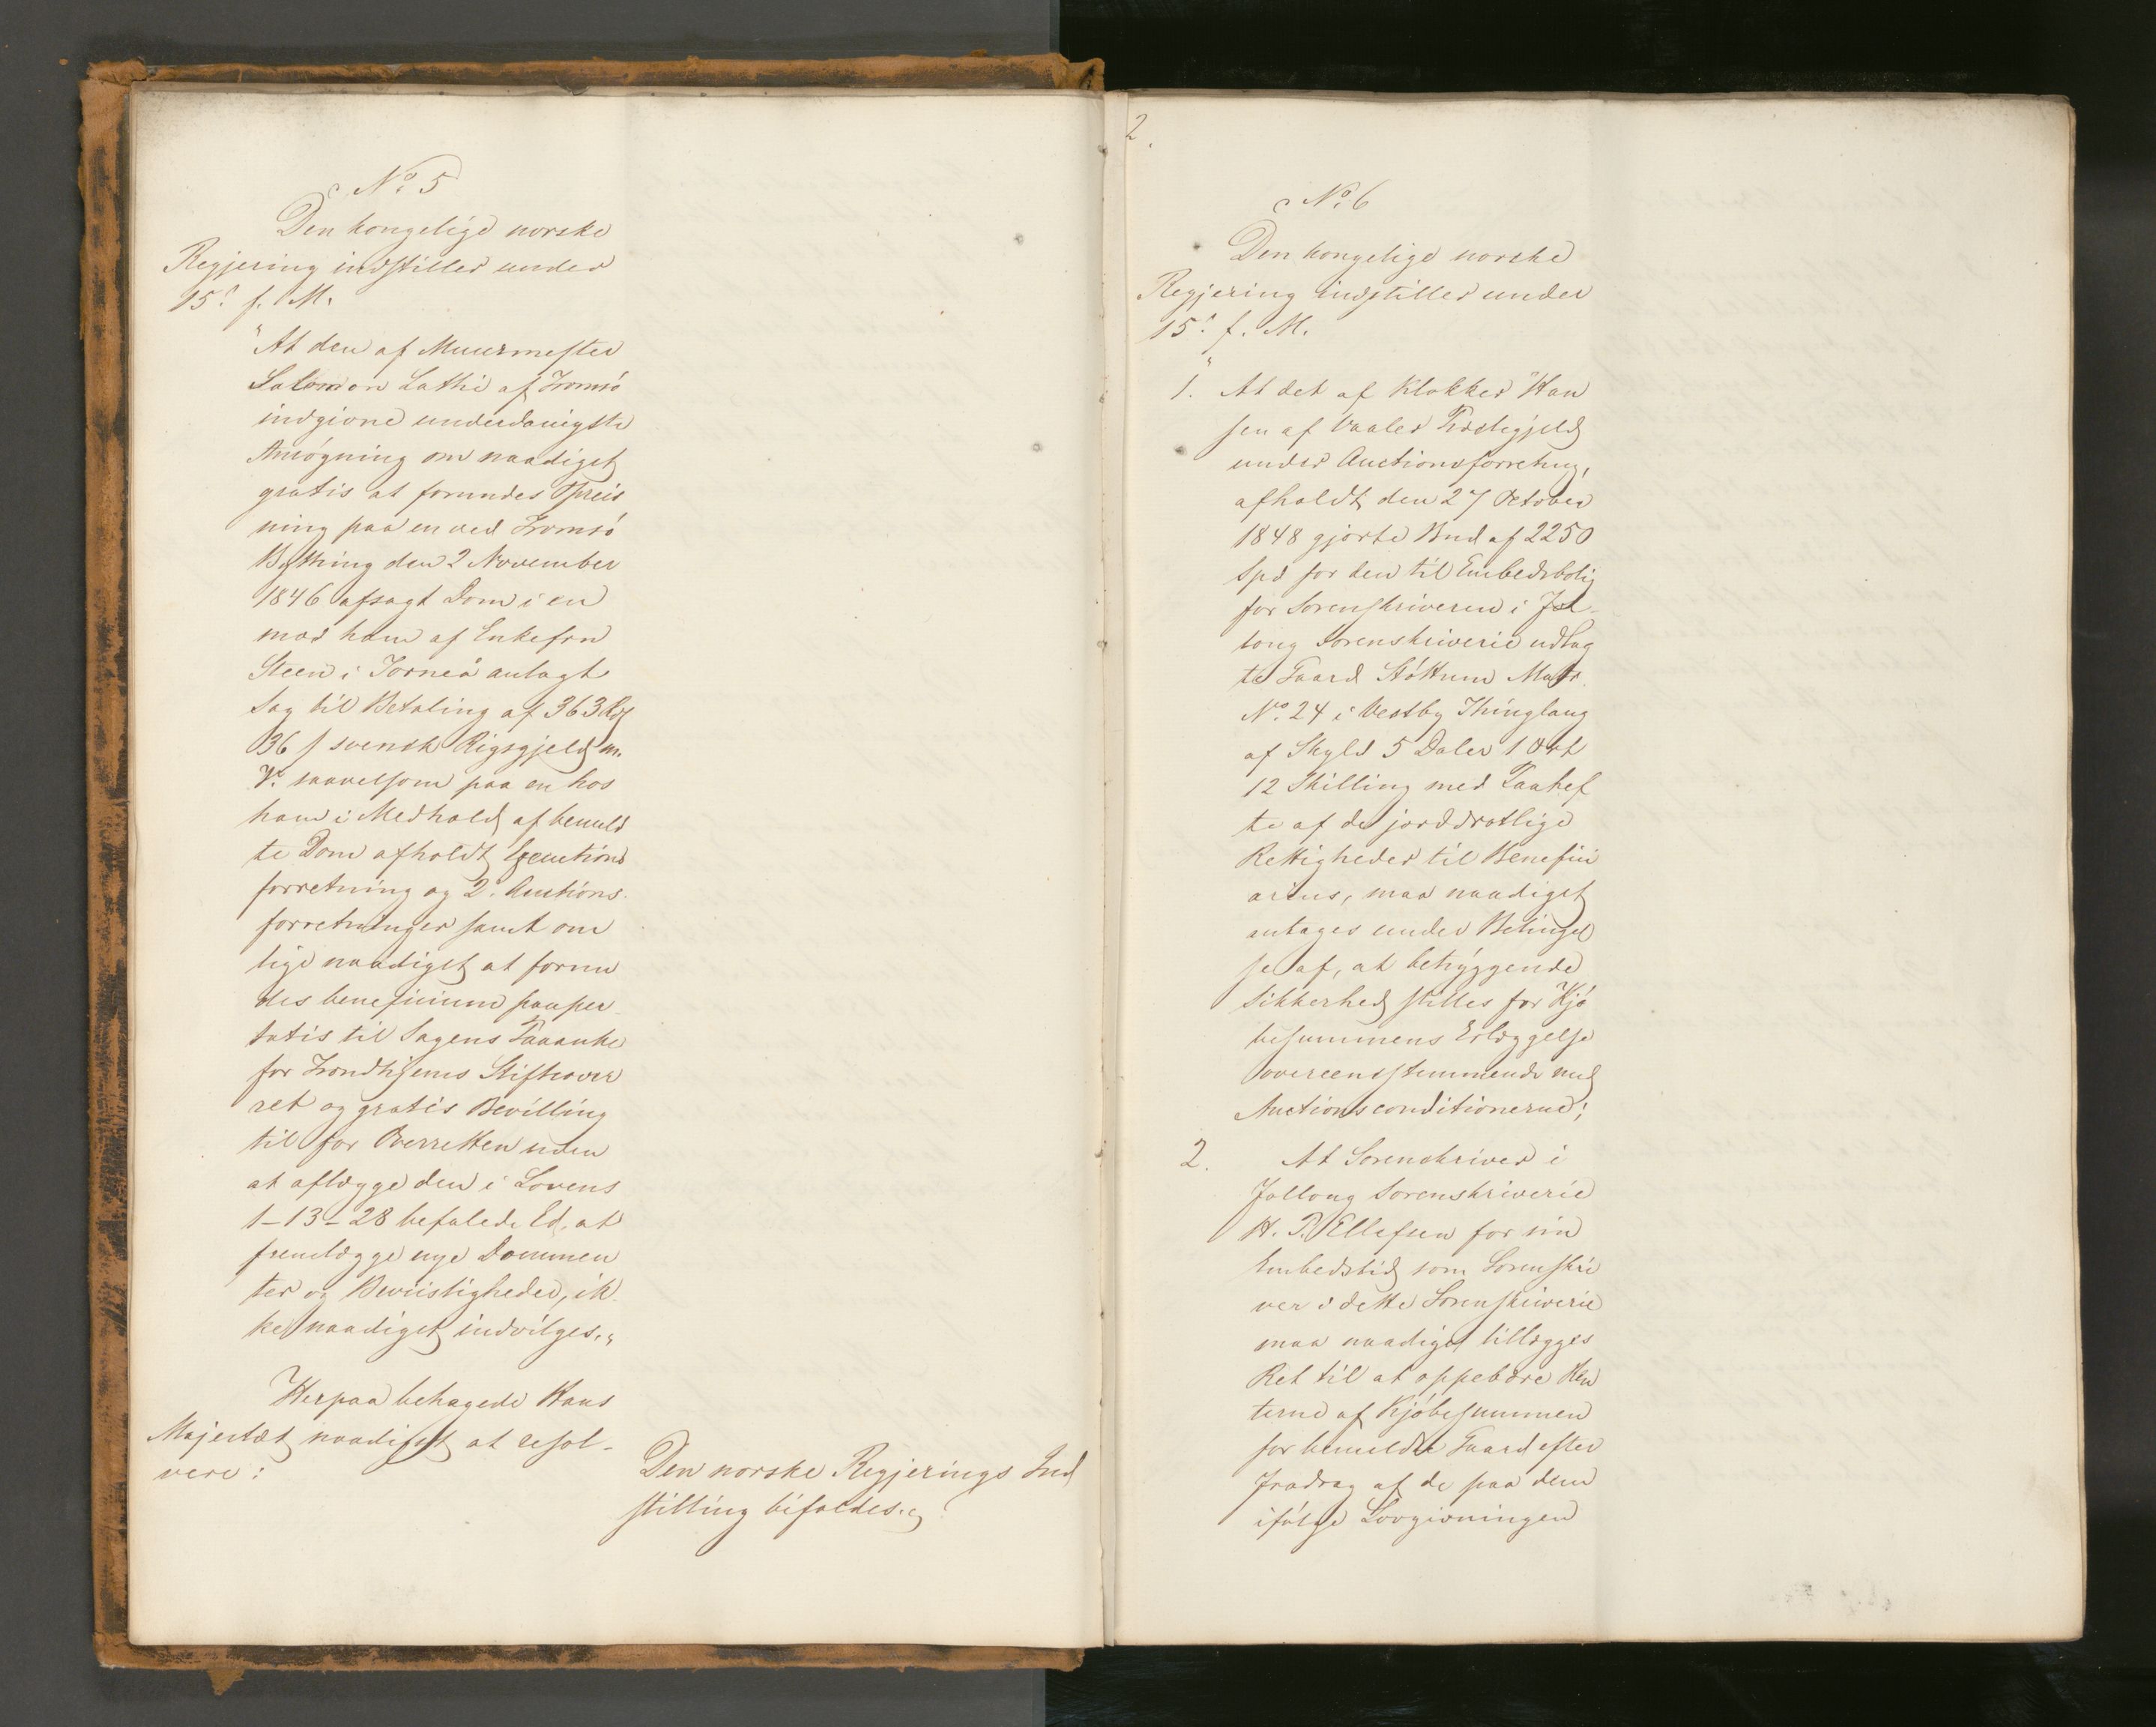 No. 5
Den kongelige norske
Regjering indstiller under
15de f. M.
"At den af Muurmester
Salomon Lathi af Tromsö
indgivne underdanigste
Ansögning om naadigst
gratis at forundes Opreis
ning paa en ved Tromsö
Bything den 2 November
1846 afsagt Dom i en
mod ham af Enkefru
Steen i Torneå anlagt
Sag til Betaling af 363 Rdl
36 s svensk Rigsgjeld m.
V. saavelsom paa en hos
ham i Medhold af bemeld
te Dom afholdt Executions
forretning og 2de Auctions
forretninger samt om
lige naadigst at forun
des beneficium pauper
tatis til Sagens Paaanke
for Trondhjems Stiftsover
ret og gratis Bevilling
til for Overretten uden
at aflægge den i Lovens
1-13-28 befalede Ed, at
fremlægge nye Documen
ter og Beviisligheder, ik
ke naadigst indvilges."
Herpaa behagede Hans
Majestæt naadigst at resol-
vere:
Den norske Regjerings Ind
stilling bifaldes.
2.
No. 6
Den kongelige norske
Regjering indstiller under
15de f. M.
"
1. At det af Klokker Han
sen af Vaaler Præstegjeld
under Auctionsforretng,
afholdt den 27 October
1848 gjorte Bud af 2250
Spd for den til Embedsbolig
for Sorenskriveren i Jol-
long Sorenskriverie udlag
te Gaard Støttum Matr.
No. 24 i Vestby Thinglaug
af Skyld 5 Daler 1 Ort
12 Skilling med Paahef
te af de jorddrotlige
Rettigheder til Benefici
arius, maa naadigst
antages under Betingel
se af, at betryggende
Sikkerhed stilles for Kjö
besummens Erlæggelse
overeensstemmende med
Auctionsconditionerne;
2. At Sorenskriver i
Jollong Sorenskriverie
H. P. Ellefsen for sin
Embedstid som Sorenskri
ver i dette Sorenskriverie
maa naadigst tillægges
Ret til at oppebære Ren
terne af Kjöbesummen
for bemeldte Gaard efter
Fradrag af de paa dem
ifölge Lovgivningen